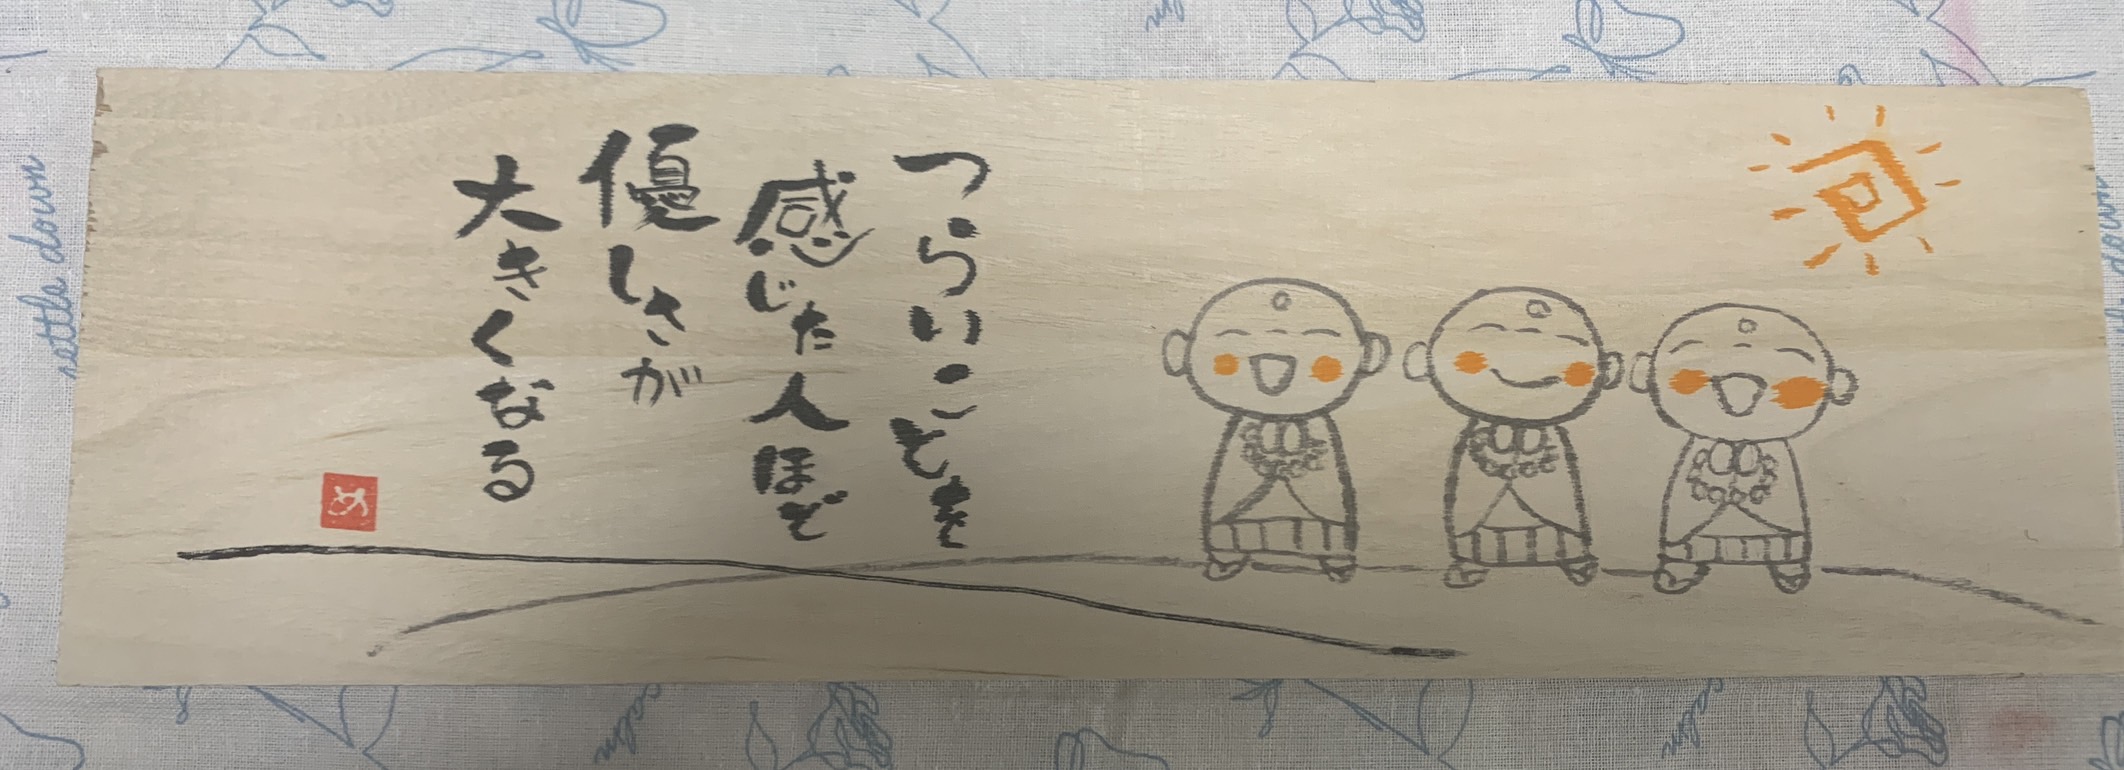 つらいことを
感じた人ほど
優しさが
大きくなる
settle down
calm
calm